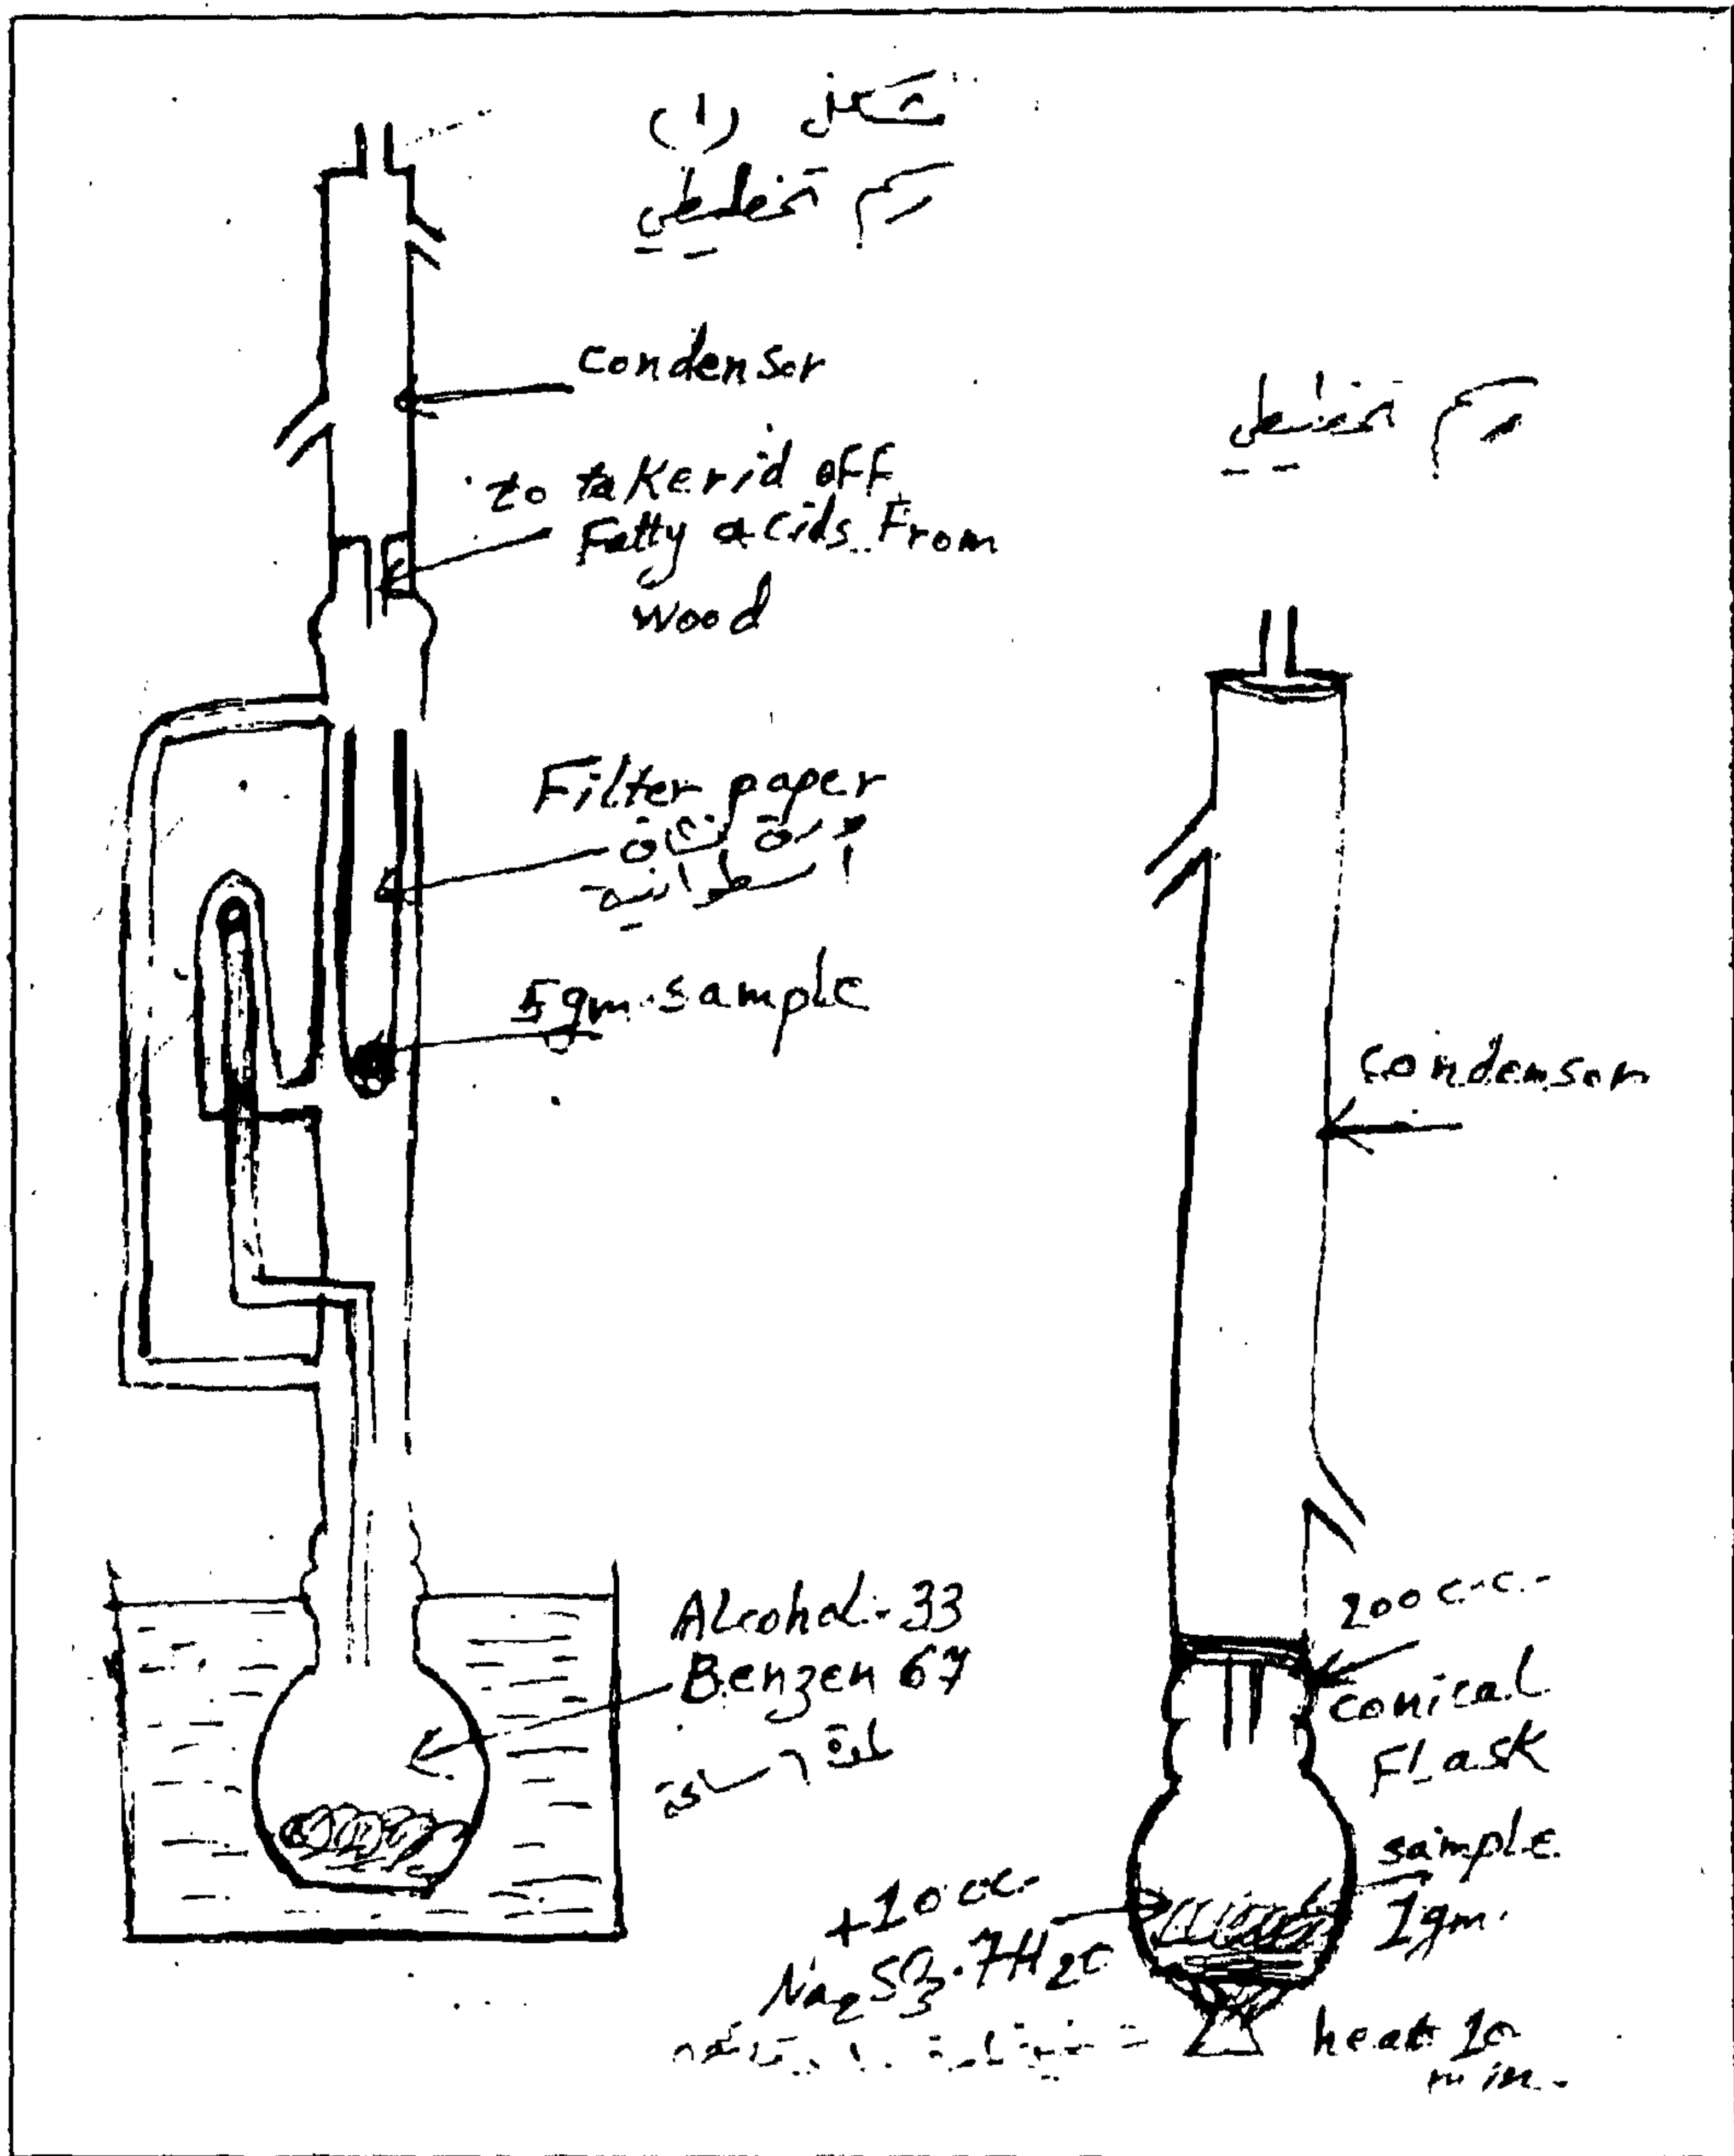 شكل (١)
رسم تخطيطي
condensor
to take rid off
Fatty acids From
wood
Filter paper
ورقة نشاف
اسطوانية
5gm sample
Alcohol - 33
Benzen 67
لمدة ٦ ساعة
رسم تخطيطي
condenson
200 c.c.
conical
Flask
sample
1gm.
+10 cc.
Na2SO3.7H2O
heat 10
min.